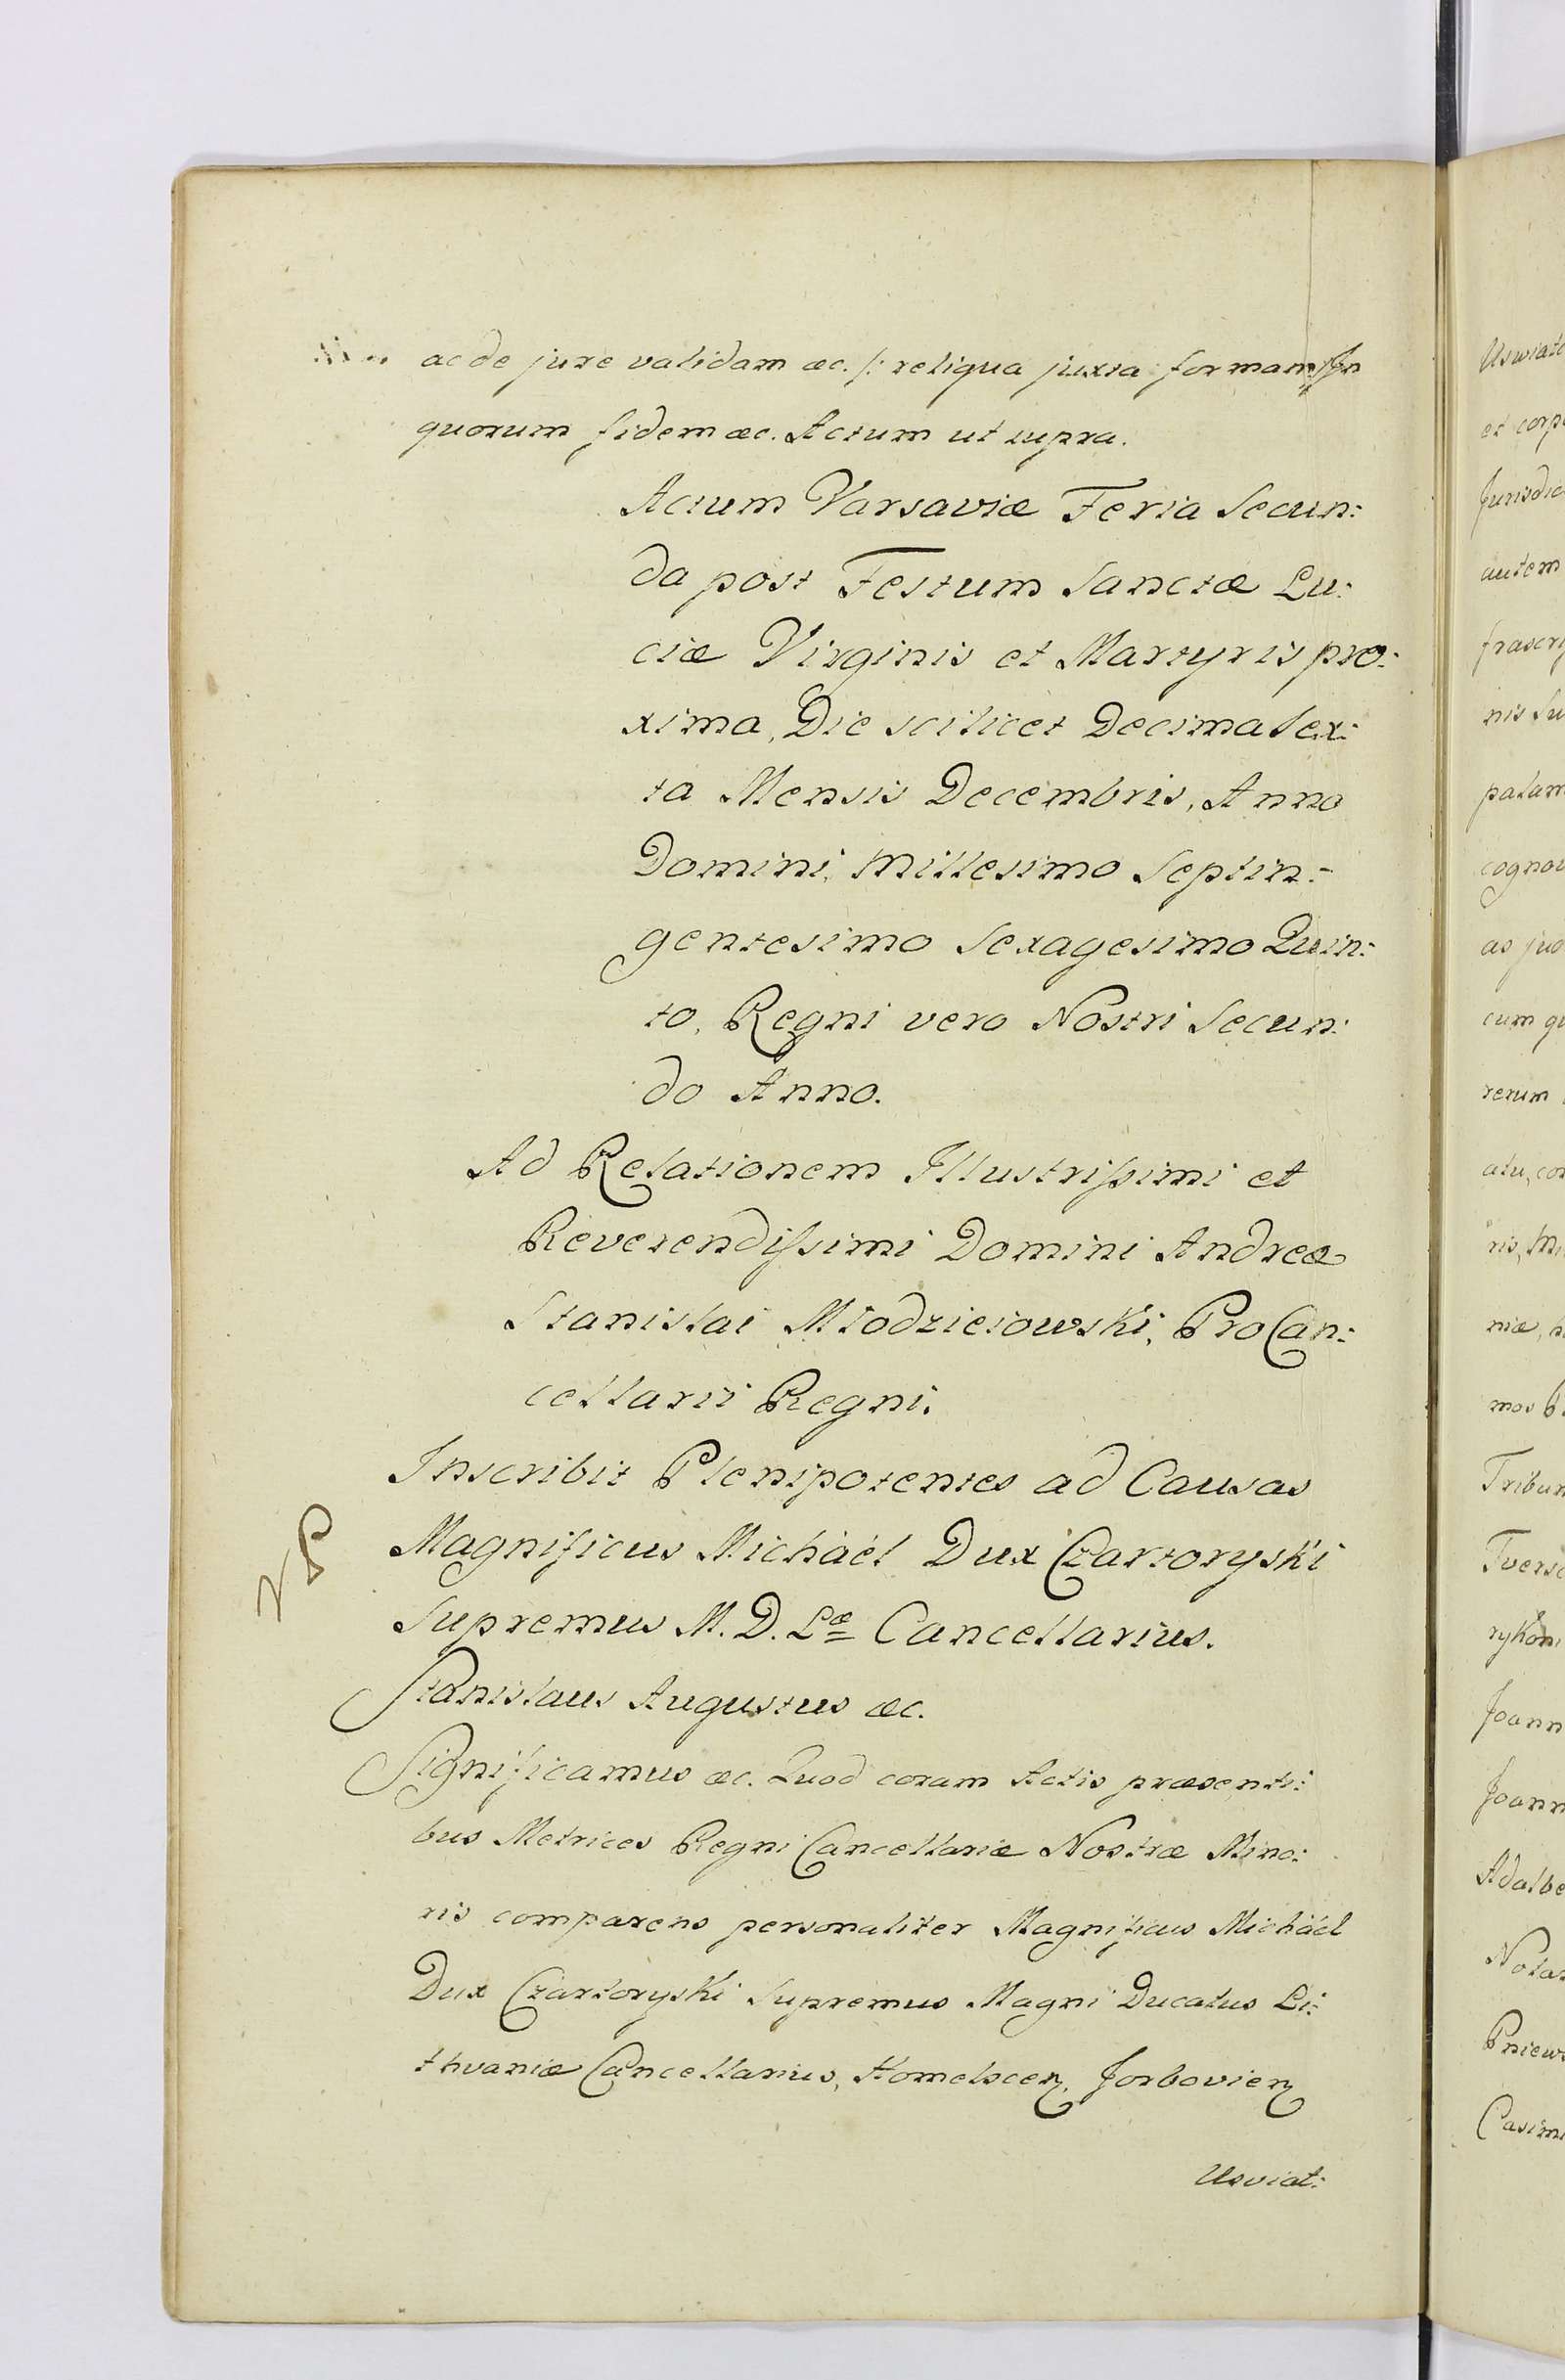 ac de jure validam æc. /: reliqua juxta formam :/ In
quorum fidem æc. Actum ut supra.
Actum Varsaviæ Feria Secun:
da post Festum Sanctæ Lu:
ciæ Virginis et Martyris pro:
xima, Die scilicet Decima Sex:
ta Mensis Decembris, Anno
Domini, Millesimo Septin:
gentesimo Sexagesimo Quin:
to, Regni vero Nostri Secun:
do Anno.
Ad Relationem Illustrissimi et
Reverendissimi Domini Andreæ
Stanislai Młodzieiowski, ProCan:
cellarii Regni.
Inscribit Plenipotentes ad Causas
Magnificus Michäel Dux Czartoryski
Supremus M. D. Læ Cancellarius.
Stanislaus Augustus æc.
Significamus æc. Quod coram Actis præsenti:
bus Metrices Regni Cancellariæ Nostræ Mino:
ris comparens personaliter Magnificus Michäel
Dux Czartoryski Supremus Magni Ducatus Li:
thvaniæ Cancellarius, Homelscen, Jorbovien
Usviat:
Uswiat
et corp
Jurisdic
autem
frascri
nis Su
palam
cognov
ac jud
cum qu
rerum
atu, con
ris, Mi
niæ, n
mos P
Tribun
Tversc
Joann
Joann
Adalbe
Notar
Pniews
Casimi